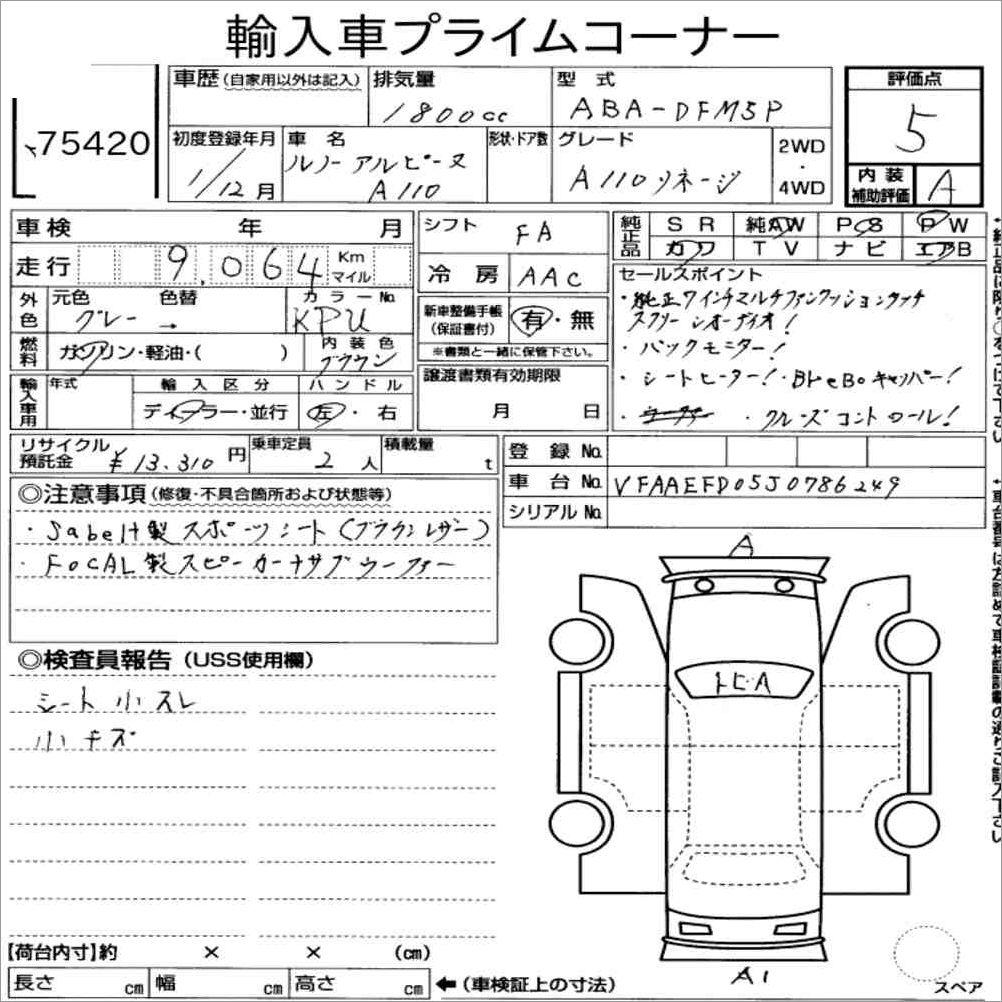 輸入車プライムコーナー
75420
車歴(自家用以外は記入)
排気量
1800cc
型式
ABA-DFM5P
評価点
5
初度登録年月
1/12月
車名
ルノーアルピーヌ
A110
形状・ドア数
グレード
A110リネージ
2WD
・
4WD
内装
補助評価
A
車検 年 月
シフト
FA
純正品
SR 純AW PS PW
カワ TV ナビ エアB
走行 9,064 Km マイル
冷房
AAC
セールスポイント
・純正7インチマルチファンクションタッチ
スクリーンオーディオ!
・バックモニター!
・シートヒーター!・BreBoキャリパー!
・クルーズコントロール!
外色
元色 色替 カラーNo
グレー → KPU
新車整備手帳
(保証書付)
有・無
※書類と一緒に保管下さい。
燃料
ガソリン・軽油・( )
内装色
ブラウン
譲渡書類有効期限
月 日
輸入車用
年式
輸入区分
ディーラー・並行
ハンドル
左・右
リサイクル
預託金
¥13,310円
乗車定員
2人
積載量
t
登録No.
車台No.
VFAAEFD05J0786249
シリアルNo.
◎注意事項(修復・不具合箇所および状態等)
・Sabelt製スポーツシート(ブラウンレザー)
・FOCAL製スピーカーナサブウーファー
◎検査員報告(USS使用欄)
シート小スレ
小キズ
A
トビ・A
A1
スペア
【荷台内寸】約 × × (cm)
長さ cm 幅 cm 高さ cm
←(車検証上の寸法)